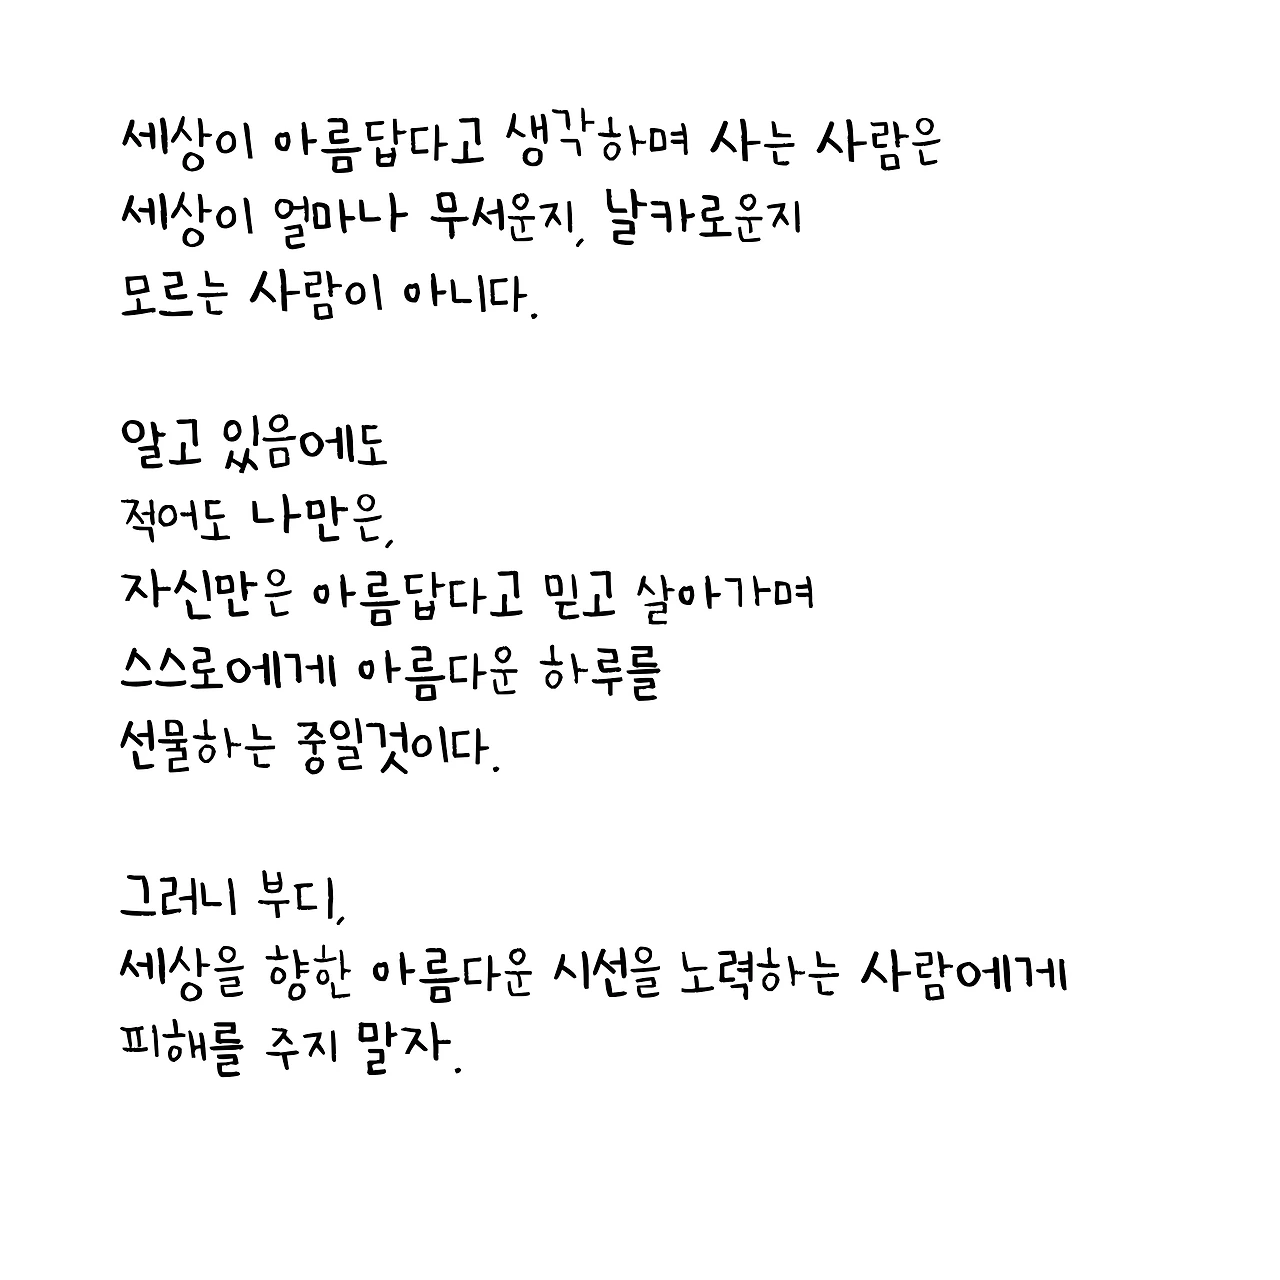 세상이 아름답다고 생각하며 사는 사람은
세상이 얼마나 무서운지, 날카로운지
모르는 사람이 아니다.
알고 있음에도
적어도 나만은,
자신만은 아름답다고 믿고 살아가며
스스로에게 아름다운 하루를
선물하는 중일것이다.
그러니 부디,
세상을 향한 아름다운 시선을 노력하는 사람에게
피해를 주지 말자.